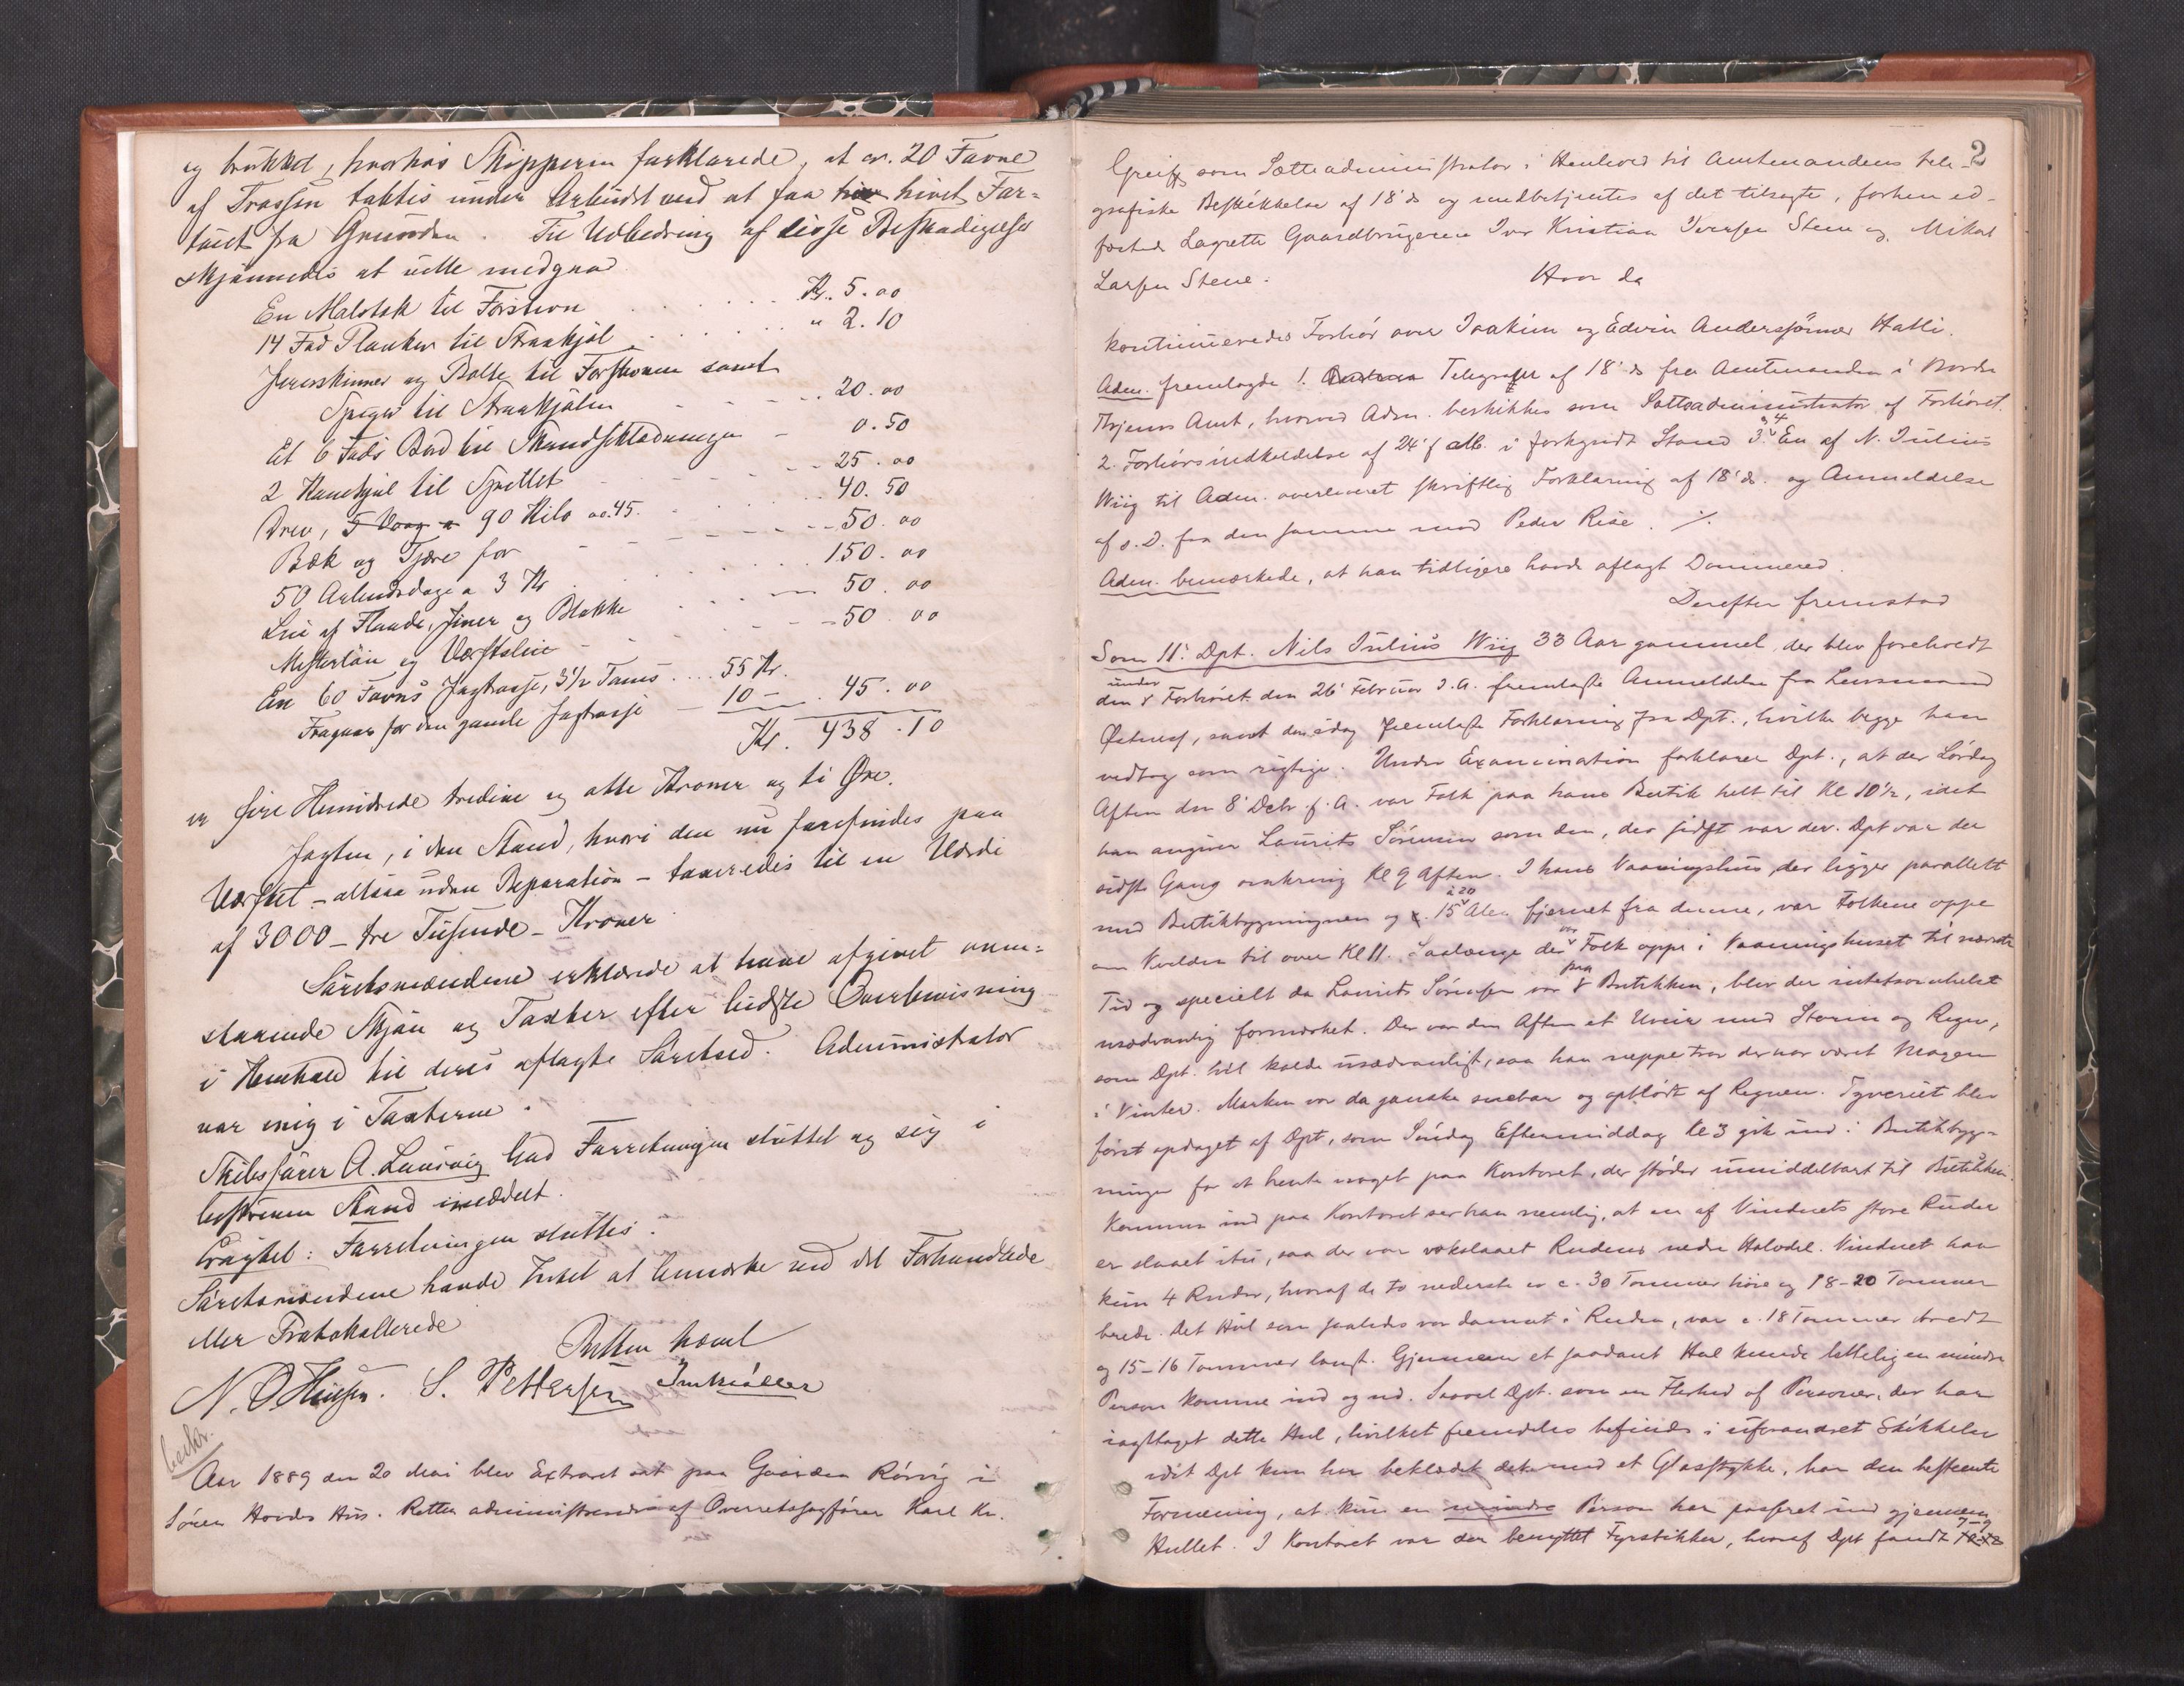 og brukket, hvorhos Skipperen forklarede, at ca. 20 Favne
af Trossen tabtes under Arbeidet med at faa hivet Far=
tøiet fra Grunden. Til Udbedring af disse Beskadigelser
skjønnedes at ville medgaa
En Malotok til Forstevn Kr. 5.00
14 Fod Planker til Straakjøl " 2.10
Jernskinner og Bolte til Forstevnen samt
Spiger til Straakjølen 20.00
Et 6 Fods Bord til Skandseklædningen 0.50
2 Hanekjøl til Spillet 25.00
Drev, 5 Voog a 90 Kilo oo.45. 40.50
Bæk og Tjære for 50.00
50 Arbeidsdage a 3 Kr 150.00
Leie af Flaade, Jiner og Blokke 50.00
Mesterløn og Værftsleie 50.00
En 60 Favns Jagtrosse, 3½ Toms .... 55 Kr.
Fragaar for den gamle Jagtrosse 10 — 45.00
Kr. 438.10
er fire Hundrede tredive og otte Kroner og ti Øre.
Jagten, i den Stand, hvori den nu forefindes paa
Værftet – altsaa uden Reparation – taxeredes til en Værdi
af 3000 – tre Tusende – Kroner
Søretsmændene erklærede at have afgivet oven=
staaende Skjøn og Taxter efter bedste Overbevisning
i Henhold til deres aflagte Søretsed. Administrator
var enig i Taxterne.
Skibsfører A. Lausvig bad Forretningen sluttet og sig i
beskreven Stand meddelt.
Eragtet: Forretningen sluttes.
Søretsmændene havde Intet at bemærke ved det Forhandlede
eller Protokollerede
Retten hævet
N. O Hansen. S. Pettersen
beskr.
Aar 1889 den 20 Mai blev Extraret sat paa Gaarden Rörvig i
Sören Hovdes Hus. Retten administreredes af Overretssagförer Karl Kr.
2
Greiff som Sætteadministrator i Henhold til Amtmandens tele-
grafiske Beskikkelse af 18' ds og medbetjentes af det tilsagte, forhen ed-
fæstede Lagrette Gaardbrugerne Iver Kristian Iversen Steen og Mikal
Larsen Stene. Hvor da
kontinueredes Forhör over Joakim og Edvin Anderssönner Hatli.
Adm. fremlagde 1. Telegrafer af 18' ds fra Amtmanden i Nordre
Thjems Amt, hvorved Adm. beskikkes som Sætteadministrator af Forhöret.
2. Forhörsindkaldelse af 24' f. Mts. i forkyndt Stand 3. & 4 En af N. Julius
Wiig til Adm. overleveret skriftlig Forklaring af 18' ds. og Anmeldelse
af s. D. fra den samme mod Peder Rise. ./.
Adm. bemærkede, at han tidligere havde aflagt Dommered.
Derefter fremstod
Som 11' Dpt. Nils Julius Wiig 33 Aar gammel, der blev foreholdt
den under Forhöret den 26' Februar d. A. fremlagte Anmeldelse fra Lensmand
samt den idag fremlagte Forklaring fra Dpt., hvilke begge han
vedtog som rigtige. Under Examination forklarer Dpt., at der Lördag
Aften den 8' Debr. f. A. var Folk paa hans Butik helt til Kl 10½, idet
han angiver Laurits Sörensen som den, der sidst var der. Dpt var der
sidste Gang omkring Kl 9 Aften. I hans Vaaningshus, der ligger parallelt
med Butikbygningen og c. 15 à 20 Alen fjernet fra denne, var Folkene oppe
om Kvelden til over Kl 11. Saalænge der var Folk oppe i Vaaningshuset til nævnte
Tid og specielt da Laurits Sörensen var paa Butikken, blev der intetsomhelst
usædvanlig formærket. Der var den Aften et Uveir med Storm og Regn,
som Dpt. vil kalde usædvanligt, saa han neppe tror der har været Magen
i Vinter. Marken var da ganske snebar og oplödt af Regnen. Tyveriet blev
först opdaget af Dpt, som Söndag Eftermiddag Kl 3 gik ind i Butikbyg-
ningen for at hente noget paa Kontoret, der stöder umiddelbart til Butikken.
Kommen ind paa Kontoret ser han nemlig, at en af Vinduets store Ruder
er slaaet itu, saa der var vækslaaet Rudens nedre Halvdel. Vinduet har
kun 4 Ruder, hvoraf de to nederste er c. 30 Tommer höie og 18–20 Tommer
brede. Det Hul som saaledes var dannet i Ruden, var c. 18 Tommer bredt
og 15–16 Tommer langt. Gjennem et saadant Hul kunde letteligen mindre
Person komme ind og ud. Saavel Dpt. som en Flerhed af Personer, der har
iagttaget dette Hul, hvilket fremdeles befindes i uforandret Skikkelse
idet Dpt kun har beklædt det med et Glasstykke, har den bestemte
Formening, at kun en mindre Person har passeret ind gjennem
Hullet. I Kontoret var der benyttet Fyrstikker, hvoraf Dpt fandt 7–9